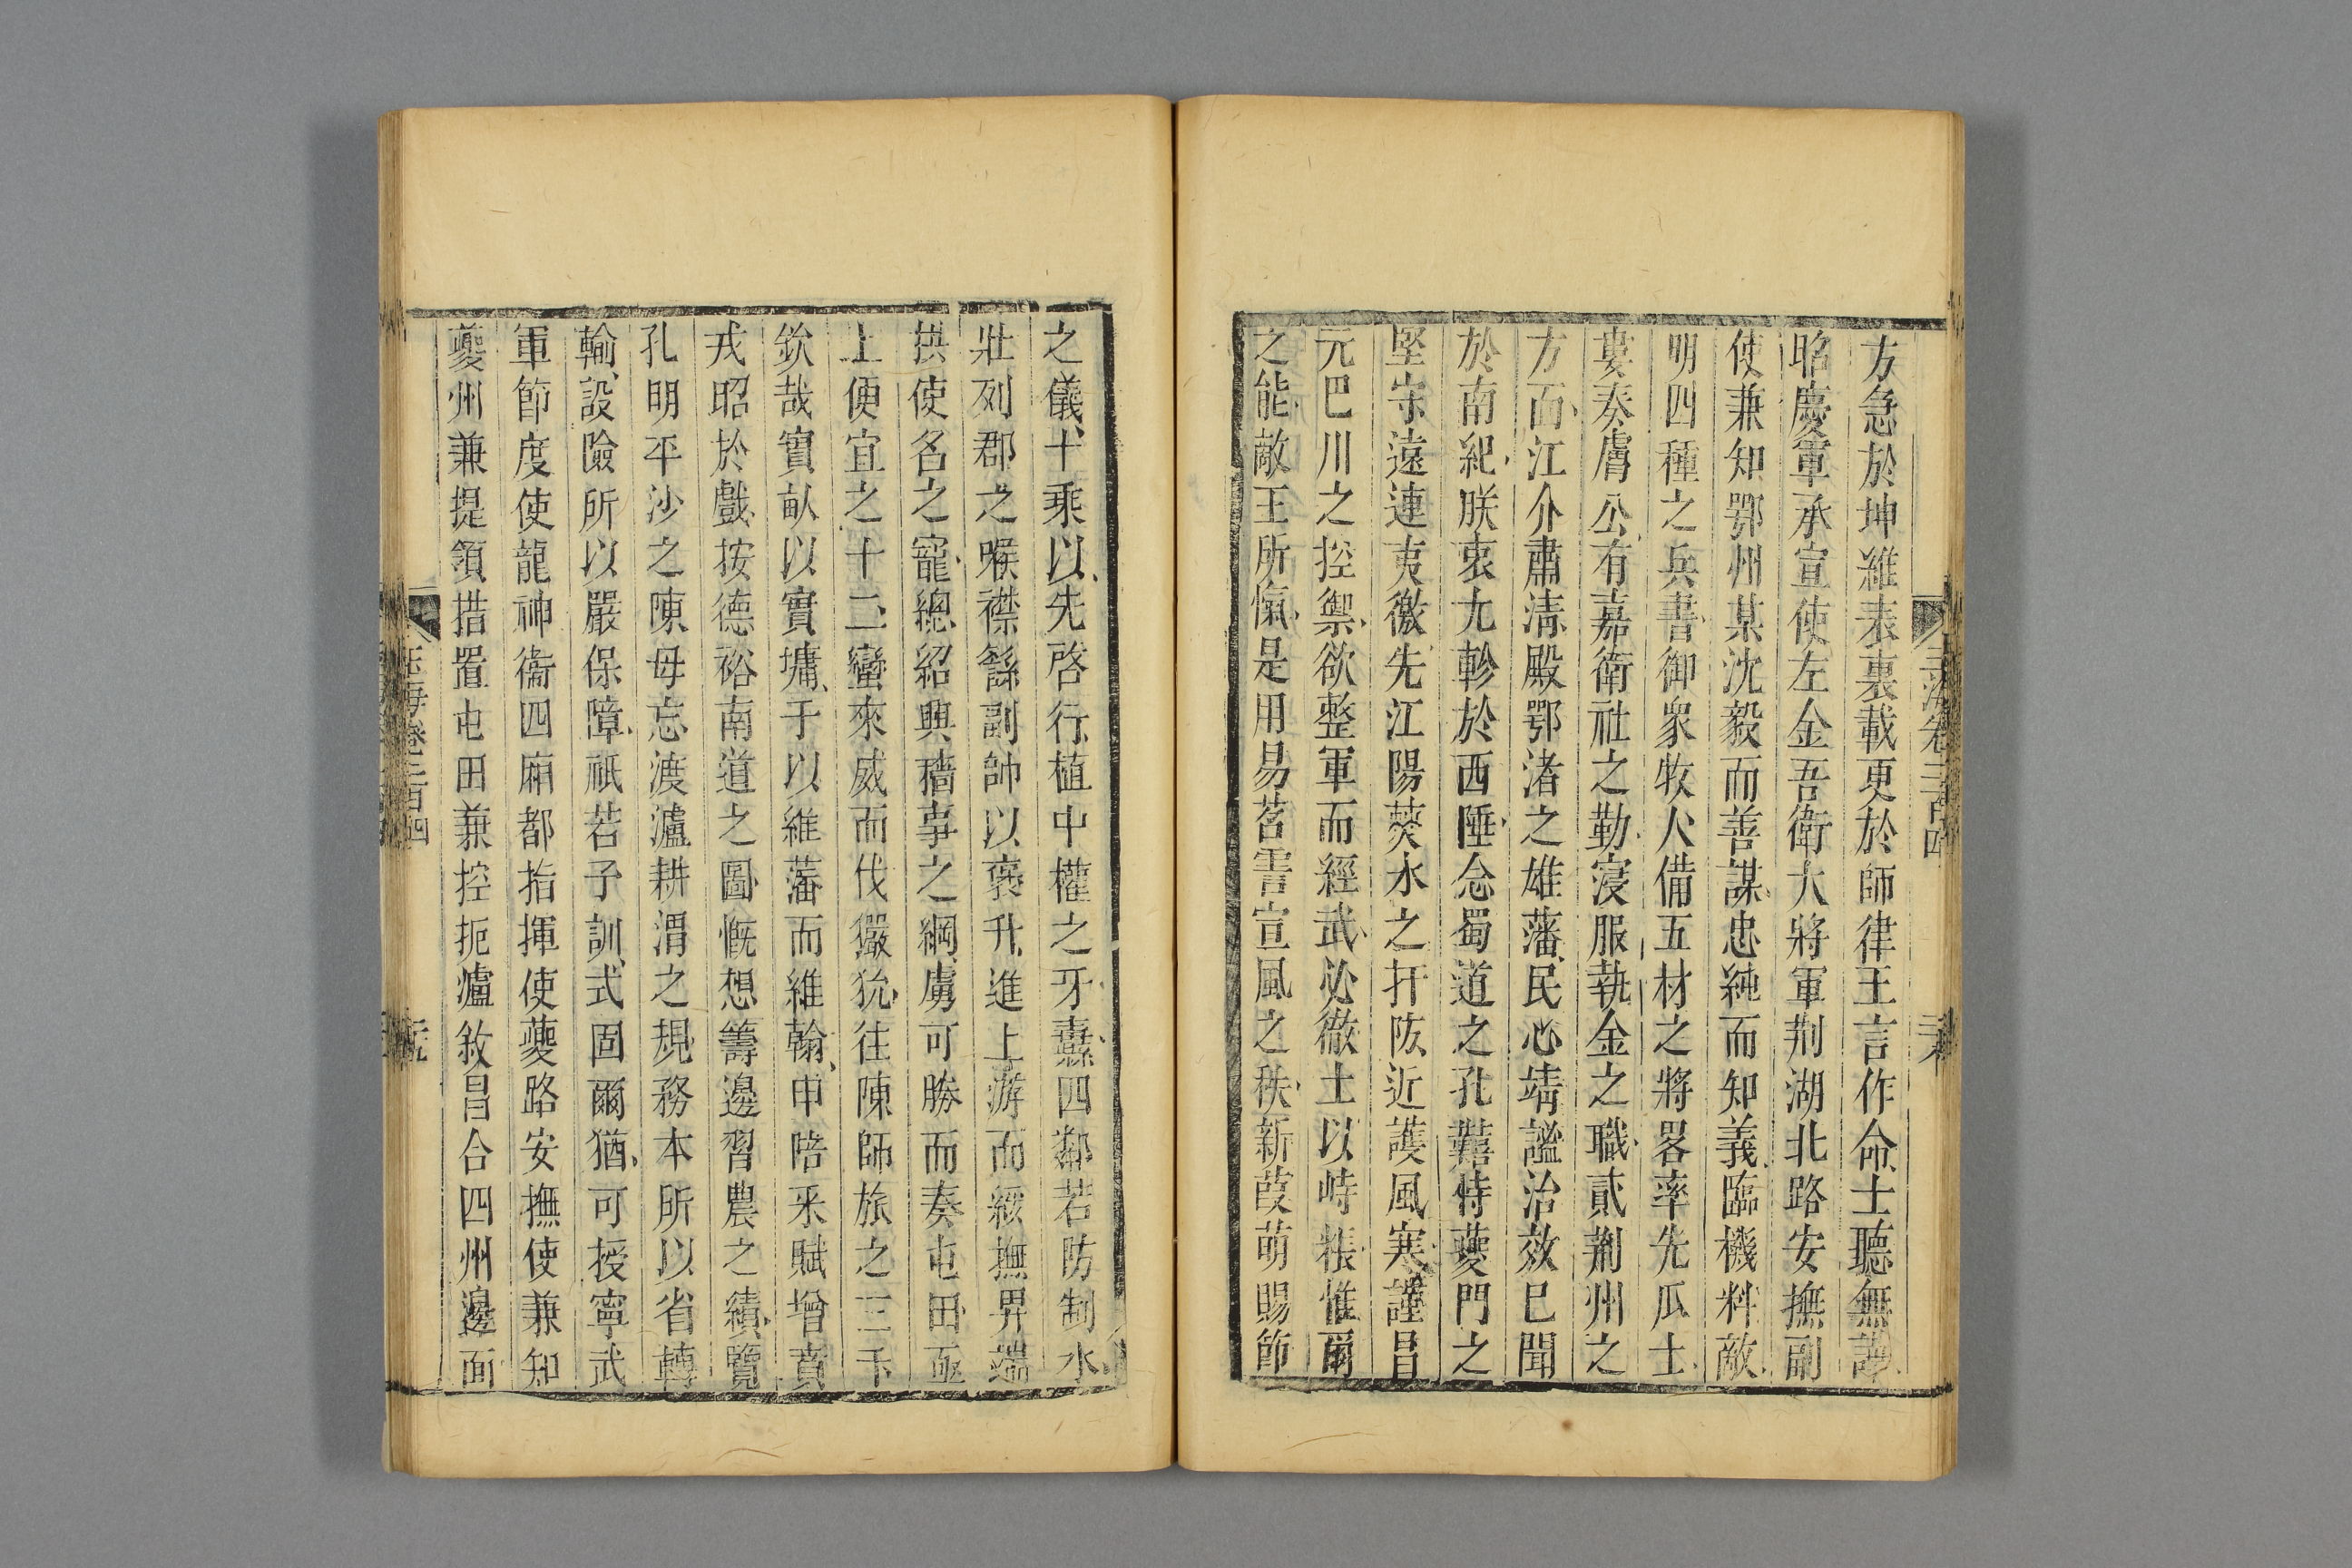 方急於坤維表裏載更於師律王言作命士聽無譁
昭慶軍承宣使左金吾衛大將軍荆湖北路安撫副
使兼知鄂州某沈毅而善謀忠純而知義臨機料敵
明四種之兵書御衆牧人備五材之將畧率先瓜士
婁奏膚公有嘉衛社之勤寖服執金之職貳荆州之
方面江介肅淸殿鄂渚之雄藩民心靖謐治效巳聞
於南紀朕衷尢軫於西陲念蜀道之孔囏恃夔門之
堅守遠連夷徼先江陽僰水之扞防近護風寒謹昌
元巴川之控禦欲整軍而經武必徹土以峙粻惟爾
之能敵王所愾是用易茗霅宣風之秩新葭萌賜節
之儀十乘以先啓行植中權之牙纛四鄰若防制水
壯列郡之喉襟繇副帥以褒升進上游而綏撫畀端
拱使名之寵總紹興穡事之綱虜可勝而奏屯田亟
上便宜之十二蠻來威而伐玁狁往陳師旅之三千
欽哉實畝以實墉于以維藩而維翰申陪釆賦增賁
戎昭於戲按德裕南道之圖慨想籌邊習農之績覽
孔明平沙之陳毋忘渡瀘耕渭之規務本所以省轉
輸設險所以嚴保障祇若予訓式固爾猶可授寧武
軍節度使龍神衞四廂都指揮使夔路安撫使兼知
夔州兼提領措置屯田兼控扼瀘敘昌合四州邊面
玉海卷二百四